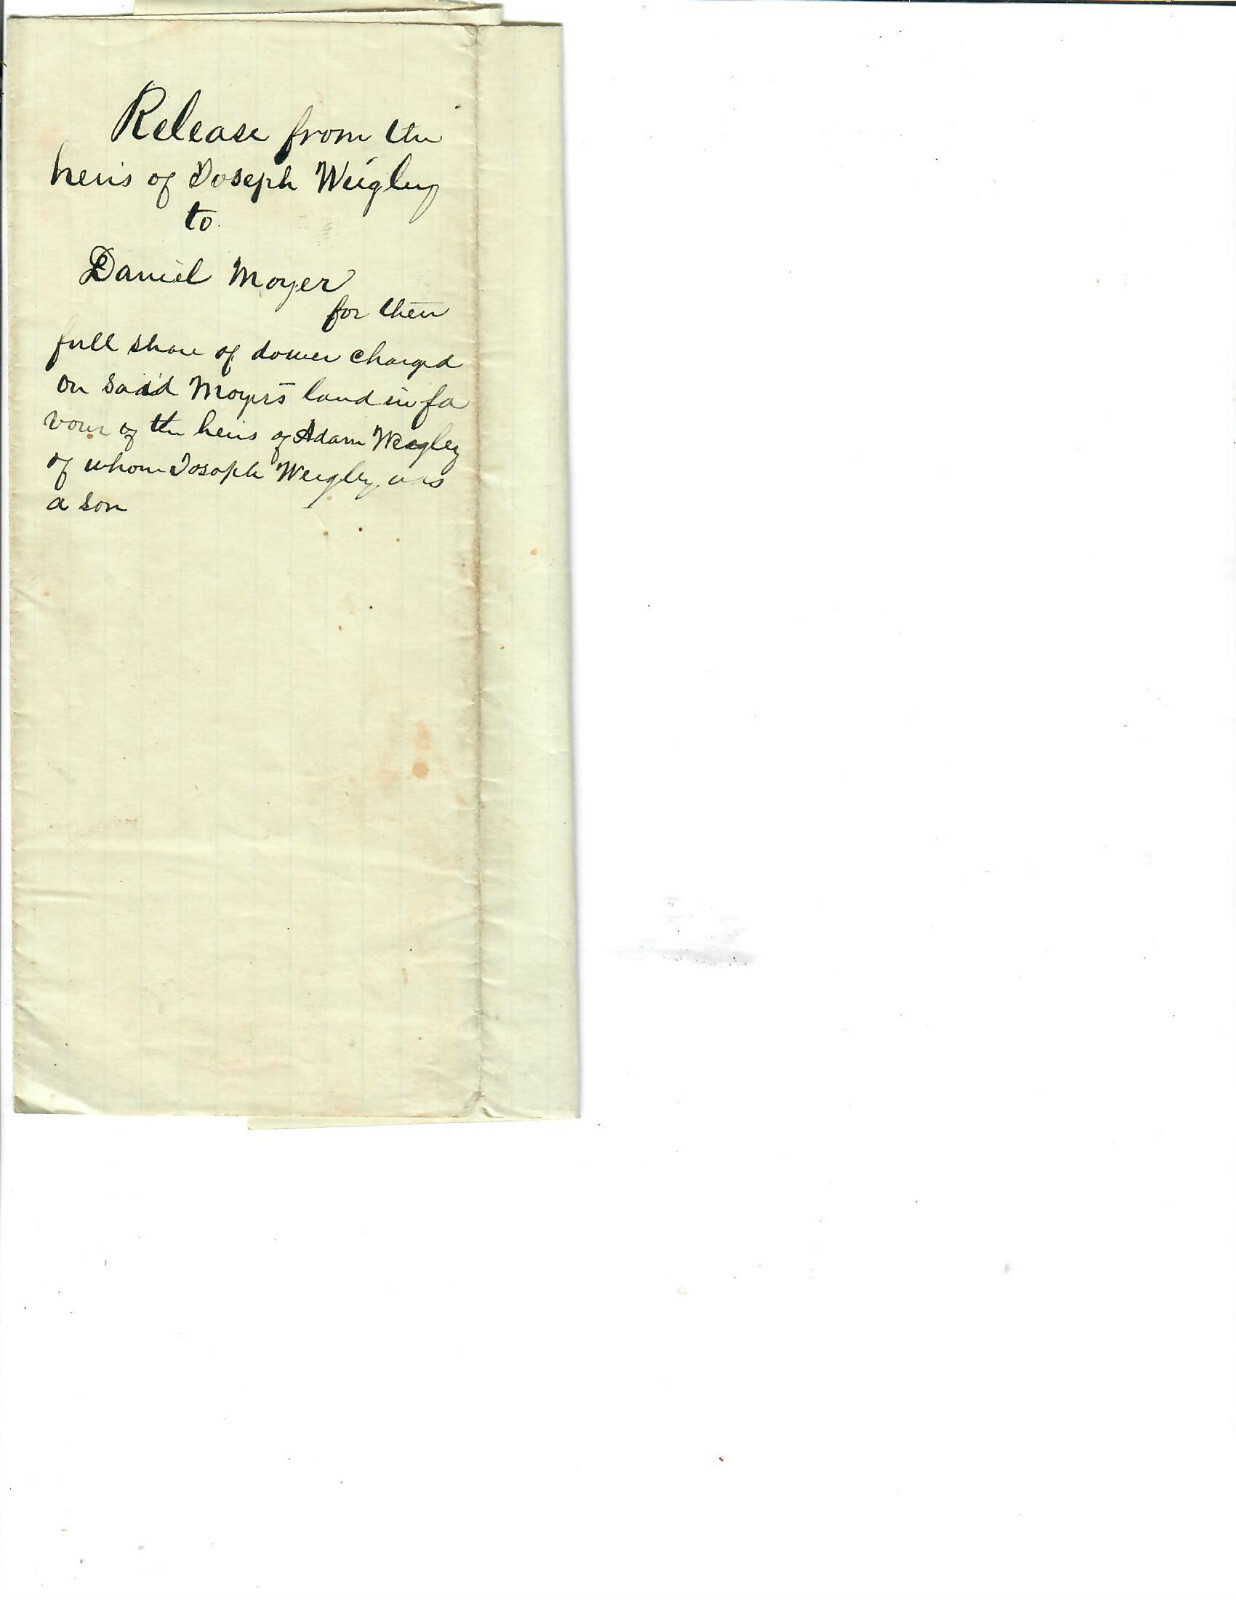 Release from the
heirs of Joseph Weigley
to
Daniel Moyer
for their
full share of dower charged
on said Moyers land in fa
vour of the heirs of Adam Weigley
of whom Joseph Weigley was
a son